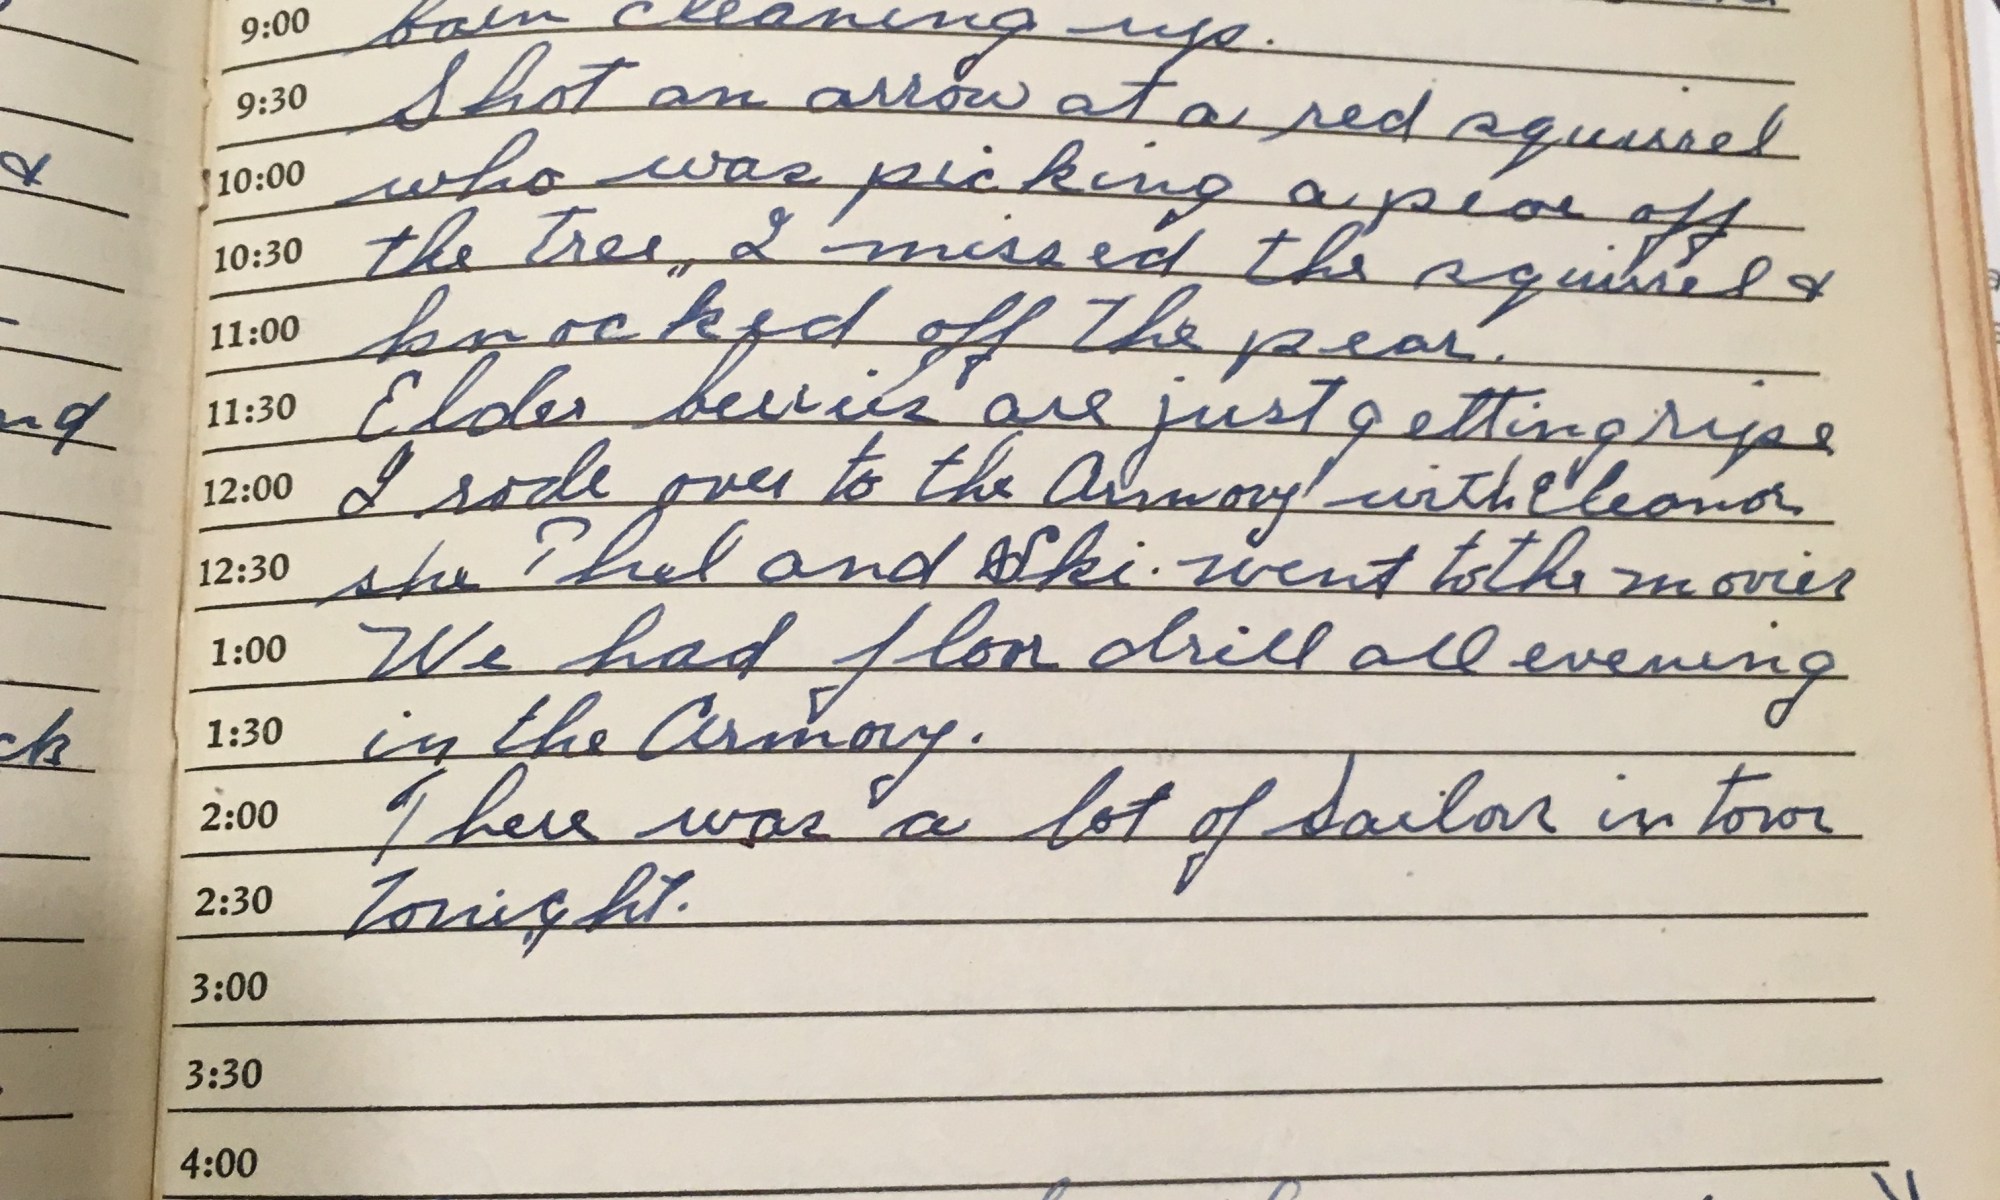 9:00 barn cleaning up.
9:30 Shot an arrow at a red squirrel
10:00 who was picking a pear off
10:30 the tree,, I missed the squirrel &
11:00 knocked off the pear.
11:30 Elder berries are just getting ripe
12:00 I rode over to the Armory with Eleanor
12:30 she Phel and Ski. went to the movies
1:00 We had floor drill all evening
1:30 in the Armory.
2:00 There was a lot of sailors in town
2:30 Tonight.
3:00
3:30
4:00